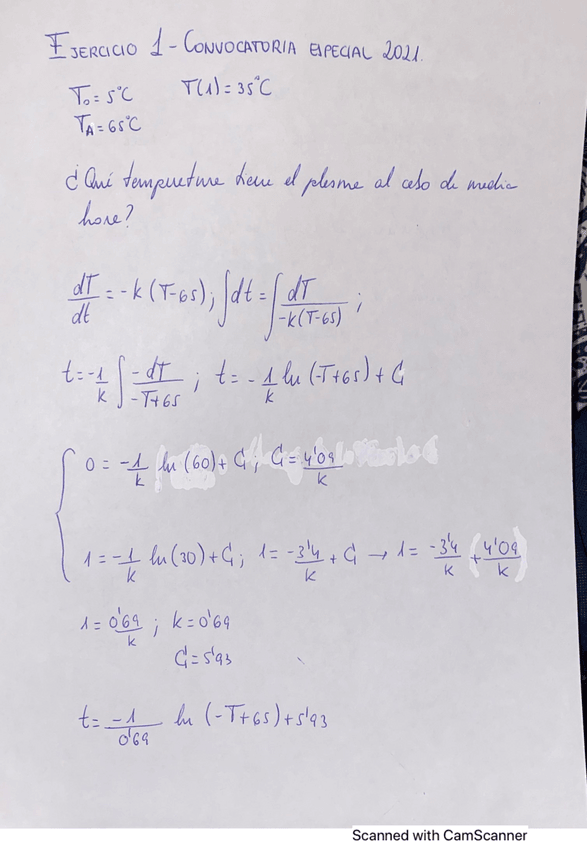 EJERCICIO 1 - CONVOCATORIA ESPECIAL 2021.
T₀ = 5°C T(1) = 35°C
T_A = 65°C
¿Qué temperatura tiene el plasma al cabo de media
hora?
dT/dt = -k (T-65); ∫dt = ∫ dT/-k(T-65) ;
t = -1/k ∫ -dT/-T+65 ; t = -1/k ln (-T+65) + C
0 = -1/k ln (60) + C; C = 4'09/k
1 = -1/k ln (30) + C; 1 = -3'4/k + C → 1 = -3'4/k + (4'09/k)
1 = 0'69/k ; k = 0'69
C = 5'93
t = -1/0'69 ln (-T+65) + 5'93
Scanned with CamScanner